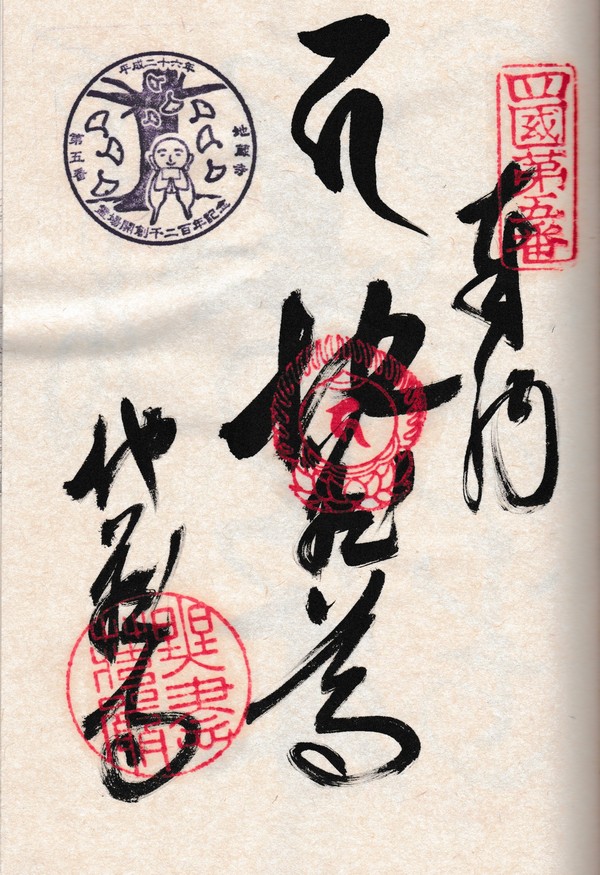 四國第五番
奉納
地蔵尊
地蔵寺
平成二十六年
地蔵寺
第五番
霊場開創千二百年記念